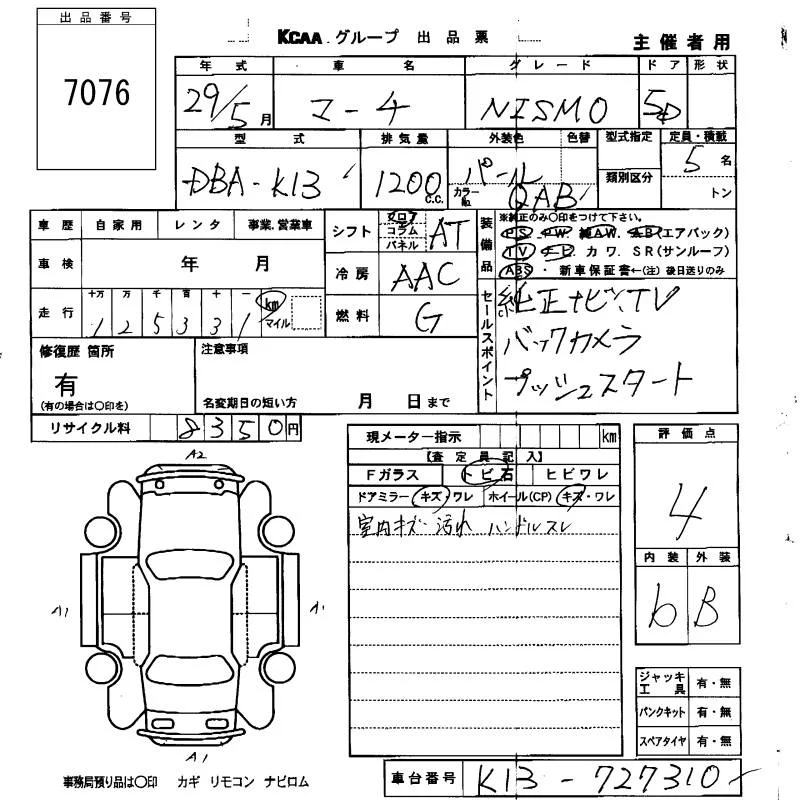 出品番号
7076
KCAA グループ 出品票
主催者用
年式 車名 グレード ドア 形状
29/5月 マーチ NISMO 5D
型式 排気量 外装色 色替 型式指定 定員・積載
DBA-K13 1200c.c. パール カラーNo. QAB 類別区分 5名 トン
車歴 自家用 レンタ 事業.営業車
シフト フロア コラム パネル AT
装備品 ※純正のみ○印をつけて下さい。
PS PW 純AW. AB(エアバック)
TV ナビ カワ. SR(サンルーフ)
ABS ・ 新車保証書←(注)後日送りのみ
車検 年 月
冷房 AAC
走行 十万 万 千 百 十 一 km マイル
1 2 5 3 3 1
燃料 G
セールスポイント
純正ナビ、TV
バックカメラ
プッシュスタート
修復歴 箇所
有
(有の場合は○印を)
注意事項
名変期日の短い方 月 日まで
リサイクル料 8350円
現メーター指示 km
【査定員記入】
Fガラス トビ石 ヒビワレ
ドアミラー キズ・ワレ ホイール(CP) キズ・ワレ
室内キズ 汚れ ハンドルスレ
評価点
4
内装 外装
b B
A2
A1 A1
A1
ジャッキ工具 有・無
パンクキット 有・無
スペアタイヤ 有・無
事務局預り品は○印 カギ リモコン ナビロム
車台番号 K13-727310